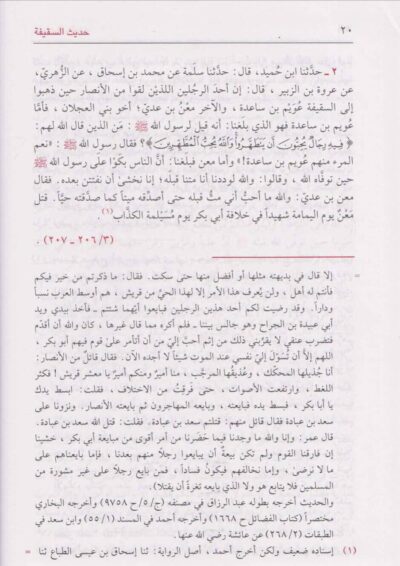 ٢٠
حديث السقيفة
٢ ـ حدَّثنا ابن حُميد، قال: حدَّثنا سلَمة عن محمد بن إسحاق، عن الزُّهريّ،
عن عروة بن الزبير، قال: إن أحدَ الرجلين اللذيْن لقوا من الأنصار حين ذهبوا
إلى السقيفة عُوَيْم بن ساعدة، والآخر معْنُ بن عديّ؛ أخو بني العجلان، فأمّا
عُويم بن ساعدة فهو الذي بلغَنا: أنه قيل لرسول الله ﷺ: مَن الذين قال الله لهم:
﴿فِيهِ رِجَالٌ يُحِبُّونَ أَن يَتَطَهَّرُوا وَاللَّهُ يُحِبُّ الْمُطَّهِّرِينَ﴾؟ فقال رسول الله ﷺ: «نعم
المرء منهم عُويم بن ساعدة!» وأما معن فبلغَنا: أنَّ الناس بكوْا على رسول الله ﷺ
حين توفَّاه الله، وقالوا: والله لوددنا أنا متنا قبلَه؛ إنا نخشىٰ أن نفتتن بعده. فقال
معن بن عديّ: والله ما أحبُّ أني متُّ قبله حتى أصدِّقه ميتاً كما صدَّقته حيًّا. قتل
مَعْنٌ يوم اليمامة شهيداً في خلافة أبي بكر يوم مُسَيْلمة الكذَّاب(١).
(٣/ ٢٠٦ ـ ٢٠٧).
= إلا قال في بديهته مثلها أو أفضل منها حتى سكت. فقال: ما ذكرتم من خير فيكم
فأنتم له أهل، ولن يُعرف هذا الأمر إلا لهذا الحيِّ من قريش، هم أوسط العرَب نسباً
وداراً. وقد رضيت لكم أحد هذين الرجلين فبايعوا أيَّهما شئتم ـ فأخذ بيدي ويد
أبي عبيدة بن الجراح وهو جالس بيننا ـ فلم أكره مما قال غيرها، كان والله أن أقدَّم
فتضرب عنقي لا يقرِّبني ذلك من إثم أحبَّ إليّ من أن أتأمر على قوم فيهم أبو بكر،
اللهم إلاَّ أن تُسَوِّل إليَّ نفسي عند الموت شيئاً لا أجده الآن. فقال قائل من الأنصار:
أنا جُذيلها المحكَّك، وعُذيقها المرجَّب، منا أميرٌ ومنكم أميرٌ يا معشر قريش! فكثر
اللغط، وارتفعت الأصوات، حتى فَرِقتُ من الاختلاف، فقلت: ابسط يدك
يا أبا بكر، فبسط يده فبايعته، وبايعه المهاجرون ثم بايعته الأنصار. ونزونا على
سعد بن عبادة فقال قائل منهم: قتلتم سعد بن عبادة. فقلت: قتل الله سعد بن عبادة.
قال عمر: وإنا والله ما وجدنا فيما حَضَرنا من أمر أقوى من مبايعة أبي بكر، خشينا
إن فارقنا القوم ولم تكن بيعةٌ أن يبايعوا رجلاً منهم بعدنا، فإما بايعناهم على
ما لا نرضىٰ، وإما نخالفهم فيكونُ فساداً، فمن بايع رجلاً على غير مشورة من
المسلمين فلا يتابع هو ولا الذي بايعه تغرةً أن يقتلا).
والحديث أخرجه بطوله عبد الرزاق في مصنفه (ج/٥ ح/ ٩٧٥٨) وأخرجه البخاري
مختصراً (كتاب الفضائل ح ١٦٦٨) وأخرجه أحمد في المسند (١/ ٥٥) وابن سعد في
الطبقات (٢/ ٢٦٨) عن عائشة رضي الله عنها.
(١) إسناده ضعيف ولكن أخرج أحمد، أصل الرواية: ثنا إسحاق بن عيسى الطباع ثنا =